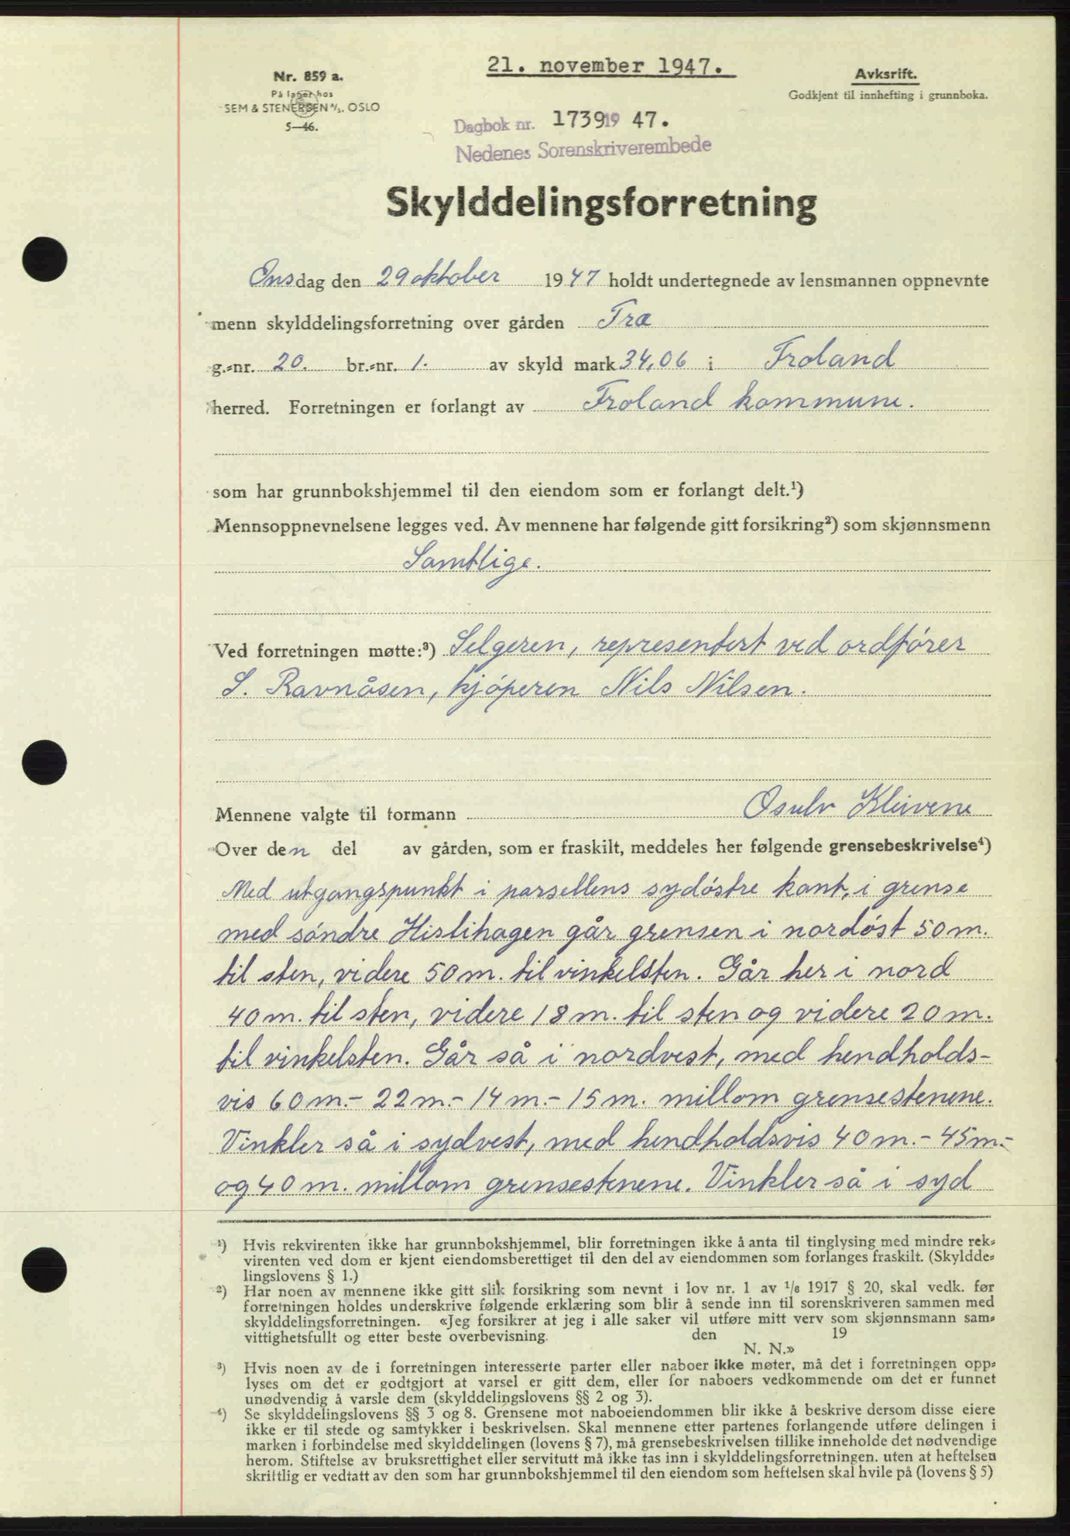 Nr. 859 a.
På lager hos
SEM & STENERSEN A/S. OSLO
5—46.
21. november 1947.
Avskrift.
Godkjent til innhefting i grunnboka.
Dagbok nr. 1739 19 47.
Nedenes Sorenskriverembede
Skylddelingsforretning
Onsdag den 29 oktober 1947 holdt undertegnede av lensmannen oppnevnte
menn skylddelingsforretning over gården Træ
g.-nr. 20. br.-nr. 1. av skyld mark 34,06 i Froland
herred. Forretningen er forlangt av Froland kommune.
som har grunnbokshjemmel til den eiendom som er forlangt delt.¹)
Mennsoppnevnelsene legges ved. Av mennene har følgende gitt forsikring²) som skjønnsmenn
Samtlige.
Ved forretningen møtte:³) Selgeren, representert ved ordfører
S. Ravnåsen, kjøperen Nils Nilsen.
Mennene valgte til formann Osulv Kleivene
Over den del av gården, som er fraskilt, meddeles her følgende grensebeskrivelse⁴)
Med utgangspunkt i parsellens sydøstre kant, i grense
med søndre Hislihagen går grensen i nordøst 50 m.
til sten, videre 50 m. til vinkelsten. Går her i nord
40 m. til sten, videre 18 m. til sten og videre 20 m.
til vinkelsten. Går så i nordvest, med hendholds-
vis 60 m.- 22 m.- 14 m.- 15 m. millom grensestenene.
Vinkler så i sydvest, med hendholdsvis 40 m.- 45 m.-
og 40 m. millom grensestenene. Vinkler så i syd
¹) Hvis rekvirenten ikke har grunnbokshjemmel, blir forretningen ikke å anta til tinglysing med mindre rek-
virenten ved dom er kjent eiendomsberettiget til den del av eiendommen som forlanges fraskilt. (Skyldde-
lingslovens § 1.)
²) Har noen av mennene ikke gitt slik forsikring som nevnt i lov nr. 1 av 1/6 1917 § 20, skal vedk. før
forretningen holdes underskrive følgende erklæring som blir å sende inn til sorenskriveren sammen med
skylddelingsforretningen. «Jeg forsikrer at jeg i alle saker vil utføre mitt verv som skjønnsmann sam-
vittighetsfullt og etter beste overbevisning. den 19
N. N.»
³) Hvis noen av de i forretningen interesserte parter eller naboer ikke møter, må det i forretningen opp-
lyses om det er godtgjort at varsel er gitt dem, eller for naboers vedkommende om det er funnet
unødvendig å varsle dem (skylddelingslovens §§ 2 og 3).
⁴) Se skylddelingslovens §§ 3 og 8. Grensene mot naboeiendommen blir ikke å beskrive dersom disse eiere
ikke er til stede og samtykker i beskrivelsen. Skal mennene etter partenes forlangende utføre delingen i
marken i forbindelse med skylddelingen (lovens § 7), må grensebeskrivelsen tillike inneholde det nødvendige
herom. Stiftelse av bruksrettighet eller servitutt må ikke tas inn i skylddelingsforretningen. uten at heftelsen
skriftlig er vedtatt av den som har grunnbokshjemmel til den eiendom som heftelsen skal hvile på (lovens § 5)